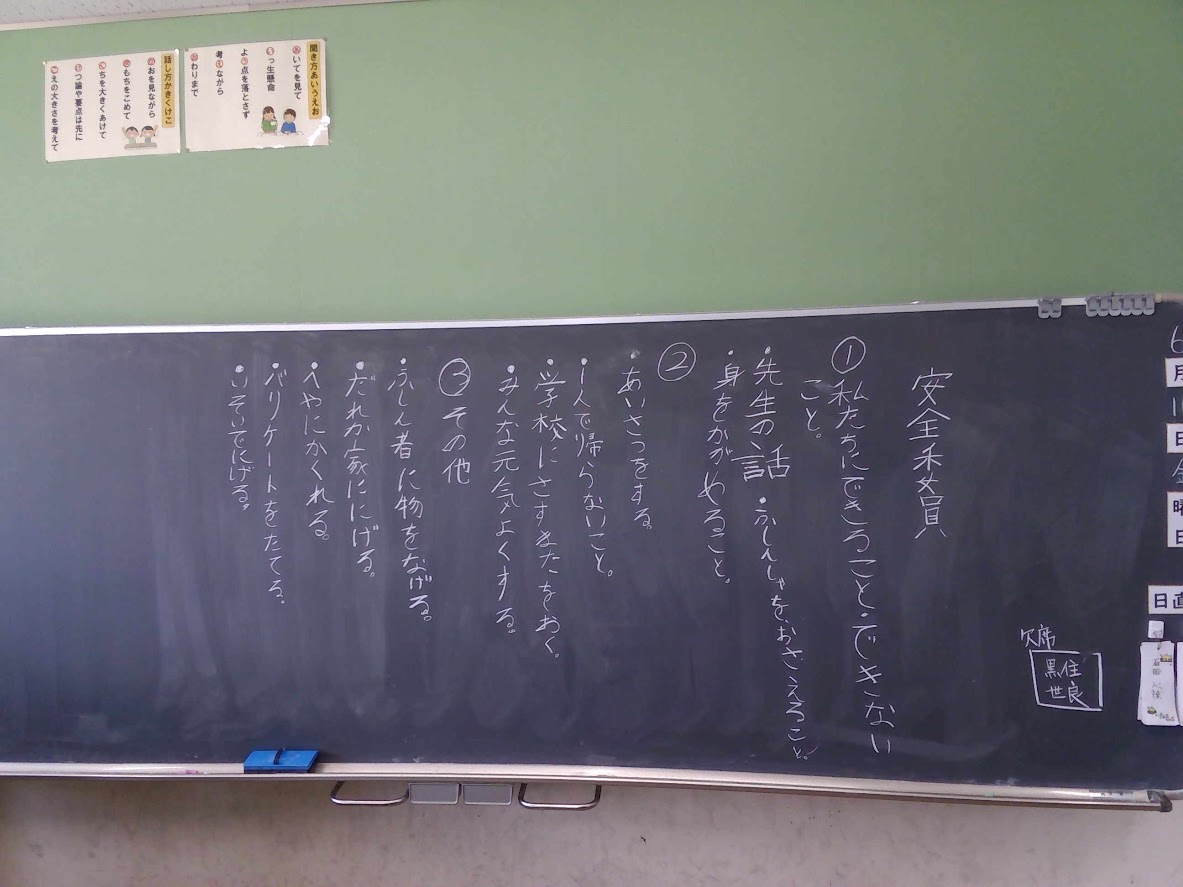 聞き方あいうえお
あいてを見て
いっ生懸命
よう点を落とさず
考えながら
おわりまで
話し方かきくけこ
かおを見ながら
きもちをこめて
くちを大きくあけて
けつ論や要点は先に
こえの大きさを考えて
6
月
日
金
曜
日
日直
欠席
黒住
世良
安全委員
①私たちにできること・できない
こと。
・先生の話・ふしんしゃをおさえること。
・身をかがめること。
②
・あいさつをする。
・1人で帰らないこと。
・学校にさすまたをおく。
・みんな元気よくする。
③その他
・ふしん者に物をなげる。
・だれか家ににげる。
・へやにかくれる。
・バリケートをたてる。
・いそいでにげる。